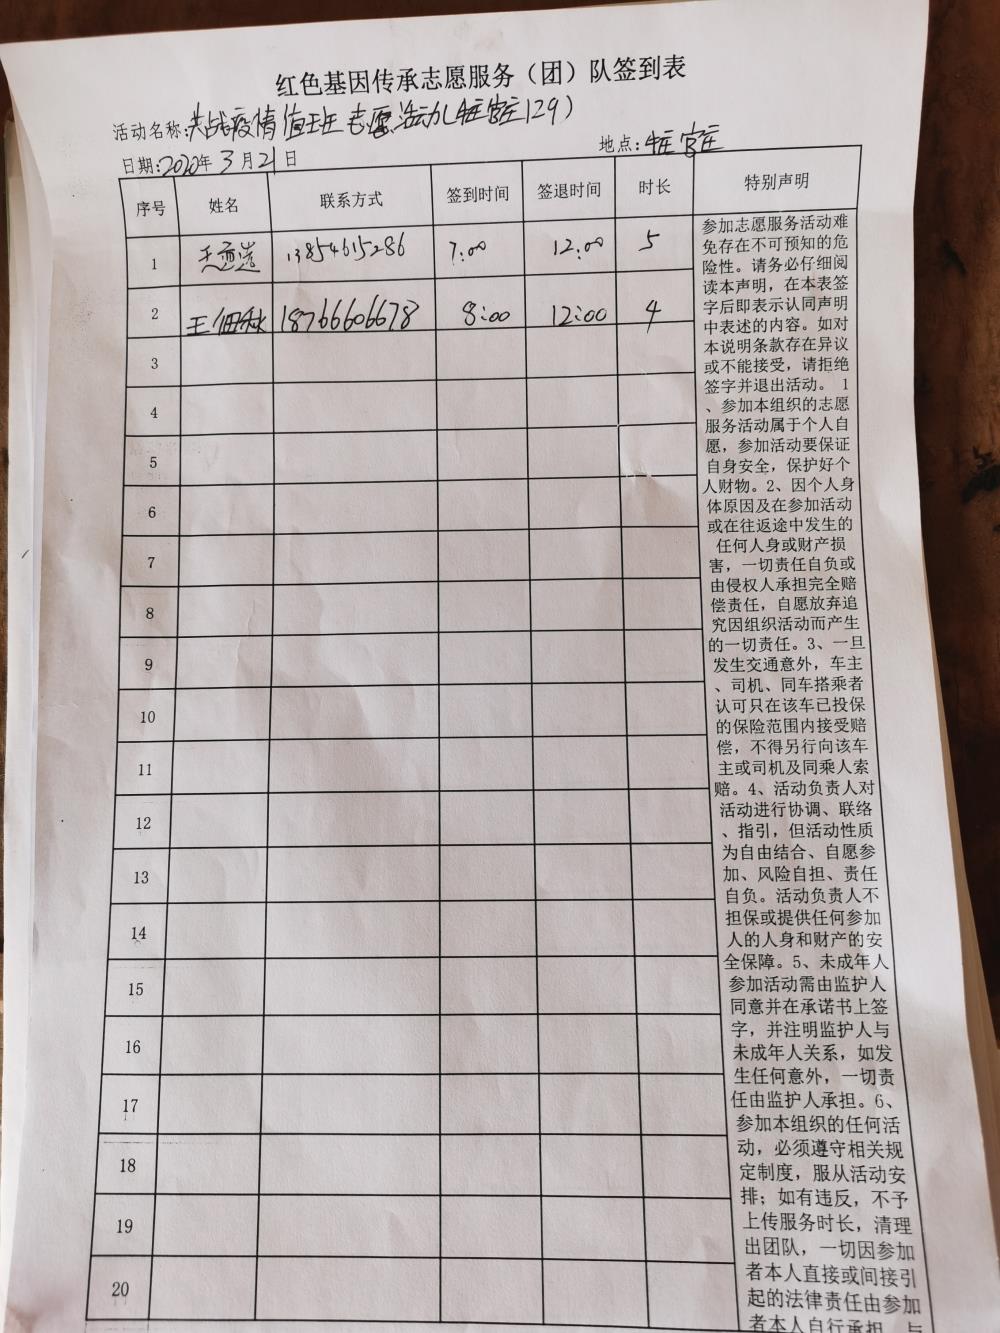 红色基因传承志愿服务（团）队签到表
活动名称:共战疫情值班志愿活动(牛庄129)
日期:2020年3月21日 地点:
序号 姓名 联系方式 签到时间 签退时间 时长 特别声明
1 13854615286 7:00 12:00 5
2 王佃秋 18766606678 8:00 12:00 4
3
4
5
6
7
8
9
10
11
12
13
14
15
16
17
18
19
20
参加志愿服务活动难
免存在不可预知的危
险性。请务必仔细阅
读本声明，在本表签
字后即表示认同声明
中表述的内容。如对
本说明条款存在异议
或不能接受，请拒绝
签字并退出活动。 1
、参加本组织的志愿
服务活动属于个人自
愿，参加活动要保证
自身安全，保护好个
人财物。2、因个人身
体原因及在参加活动
或在往返途中发生的
任何人身或财产损
害，一切责任自负或
由侵权人承担完全赔
偿责任，自愿放弃追
究因组织活动而产生
的一切责任。3、一旦
发生交通意外，车主
、司机、同车搭乘者
认可只在该车已投保
的保险范围内接受赔
偿，不得另行向该车
主或司机及同乘人索
赔。4、活动负责人对
活动进行协调、联络
、指引，但活动性质
为自由结合、自愿参
加、风险自担、责任
自负。活动负责人不
担保或提供任何参加
人的人身和财产的安
全保障。5、未成年人
参加活动需由监护人
同意并在承诺书上签
字，并注明监护人与
未成年人关系，如发
生任何意外，一切责
任由监护人承担。6、
参加本组织的任何活
动，必须遵守相关规
定制度，服从活动安
排；如有违反，不予
上传服务时长，清理
出团队，一切因参加
者本人直接或间接引
起的法律责任由参加
者本人自行承担，与